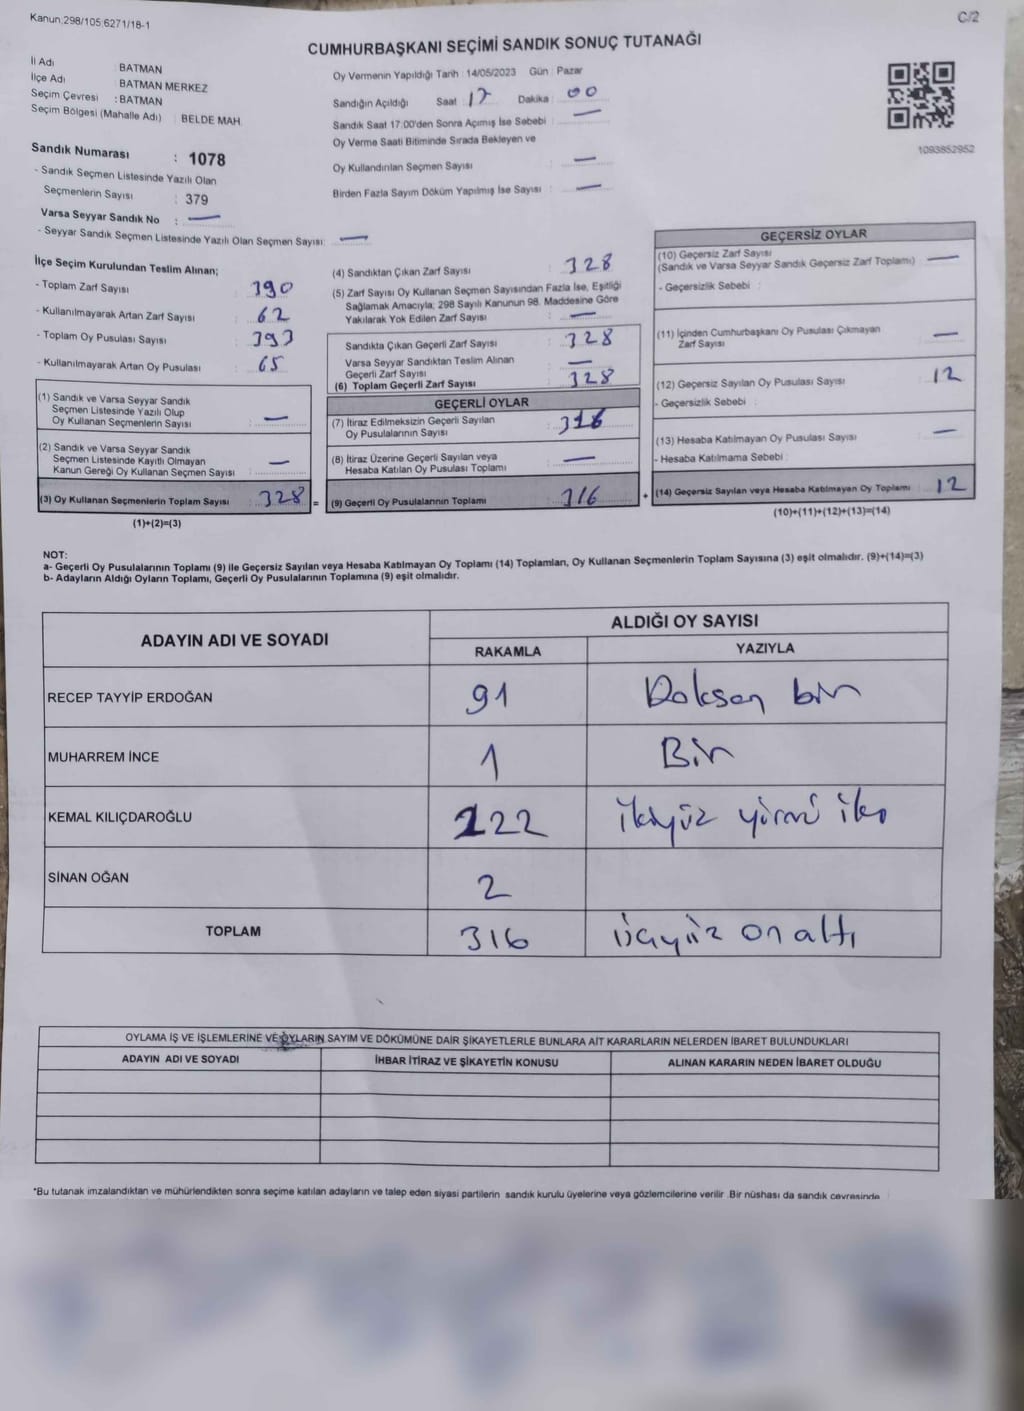 Kanun;298/105;6271/18-1
C/2
CUMHURBAŞKANI SEÇİMİ SANDIK SONUÇ TUTANAĞI
İl Adı : BATMAN
İlçe Adı : BATMAN MERKEZ
Seçim Çevresi : BATMAN
Seçim Bölgesi (Mahalle Adı) : BELDE MAH.
Sandık Numarası : 1078
- Sandık Seçmen Listesinde Yazılı Olan
Seçmenlerin Sayısı : 379
Varsa Seyyar Sandık No : —
- Seyyar Sandık Seçmen Listesinde Yazılı Olan Seçmen Sayısı: —
Oy Vermenin Yapıldığı Tarih : 14/05/2023 Gün : Pazar
Sandığın Açıldığı Saat : 17 Dakika : 00
Sandık Saat 17:00'den Sonra Açımış İse Sebebi : —
Oy Verme Saati Bitiminde Sırada Bekleyen ve
Oy Kullandırılan Seçmen Sayısı : —
Birden Fazla Sayım Döküm Yapılmış İse Sayısı : —
1093852952
İlçe Seçim Kurulundan Teslim Alınan;
- Toplam Zarf Sayısı : 390
- Kullanılmayarak Artan Zarf Sayısı : 62
- Toplam Oy Pusulası Sayısı : 393
- Kullanılmayarak Artan Oy Pusulası : 65
(1) Sandık ve Varsa Seyyar Sandık
Seçmen Listesinde Yazılı Olup
Oy Kullanan Seçmenlerin Sayısı : —
(2) Sandık ve Varsa Seyyar Sandık
Seçmen Listesinde Kayıtlı Olmayan
Kanun Gereği Oy Kullanan Seçmen Sayısı : —
(3) Oy Kullanan Seçmenlerin Toplam Sayısı : 328 =
(1)+(2)=(3)
(4) Sandıktan Çıkan Zarf Sayısı : 328
(5) Zarf Sayısı Oy Kullanan Seçmen Sayısından Fazla İse, Eşitliği
Sağlamak Amacıyla; 298 Sayılı Kanunun 98. Maddesine Göre
Yakılarak Yok Edilen Zarf Sayısı : —
Sandıkta Çıkan Geçerli Zarf Sayısı : 328
Varsa Seyyar Sandıktan Teslim Alınan
Geçerli Zarf Sayısı : —
(6) Toplam Geçerli Zarf Sayısı : 328
GEÇERLİ OYLAR
(7) İtiraz Edilmeksizin Geçerli Sayılan
Oy Pusulalarının Sayısı : 316
(8) İtiraz Üzerine Geçerli Sayılan veya
Hesaba Katılan Oy Pusulası Toplamı : —
(9) Geçerli Oy Pusulalarının Toplamı : 316 +
GEÇERSİZ OYLAR
(10) Geçersiz Zarf Sayısı
(Sandık ve Varsa Seyyar Sandık Geçersiz Zarf Toplamı) : —
- Geçersizlik Sebebi :
(11) İçinden Cumhurbaşkanı Oy Pusulası Çıkmayan
Zarf Sayısı : —
(12) Geçersiz Sayılan Oy Pusulası Sayısı : 12
- Geçersizlik Sebebi :
(13) Hesaba Katılmayan Oy Pusulası Sayısı : —
- Hesaba Katılmama Sebebi :
(14) Geçersiz Sayılan veya Hesaba Katılmayan Oy Toplamı : 12
(10)+(11)+(12)+(13)=(14)
NOT:
a- Geçerli Oy Pusulalarının Toplamı (9) ile Geçersiz Sayılan veya Hesaba Katılmayan Oy Toplamı (14) Toplamları, Oy Kullanan Seçmenlerin Toplam Sayısına (3) eşit olmalıdır. (9)+(14)=(3)
b- Adayların Aldığı Oyların Toplamı, Geçerli Oy Pusulalarının Toplamına (9) eşit olmalıdır.
ADAYIN ADI VE SOYADI
ALDIĞI OY SAYISI
RAKAMLA YAZIYLA
RECEP TAYYİP ERDOĞAN 91 Doksan bir
MUHARREM İNCE 1 Bir
KEMAL KILIÇDAROĞLU 222 ikiyüz yirmi iki
SİNAN OĞAN 2
TOPLAM 316 üçyüz on altı
OYLAMA İŞ VE İŞLEMLERİNE VE OYLARIN SAYIM VE DÖKÜMÜNE DAİR ŞİKAYETLERLE BUNLARA AİT KARARLARIN NELERDEN İBARET BULUNDUKLARI
ADAYIN ADI VE SOYADI İHBAR İTİRAZ VE ŞİKAYETİN KONUSU ALINAN KARARIN NEDEN İBARET OLDUĞU
*Bu tutanak imzalandıktan ve mühürlendikten sonra seçime katılan adayların ve talep eden siyasi partilerin sandık kurulu üyelerine veya gözlemcilerine verilir. Bir nüshası da sandık çevresinde